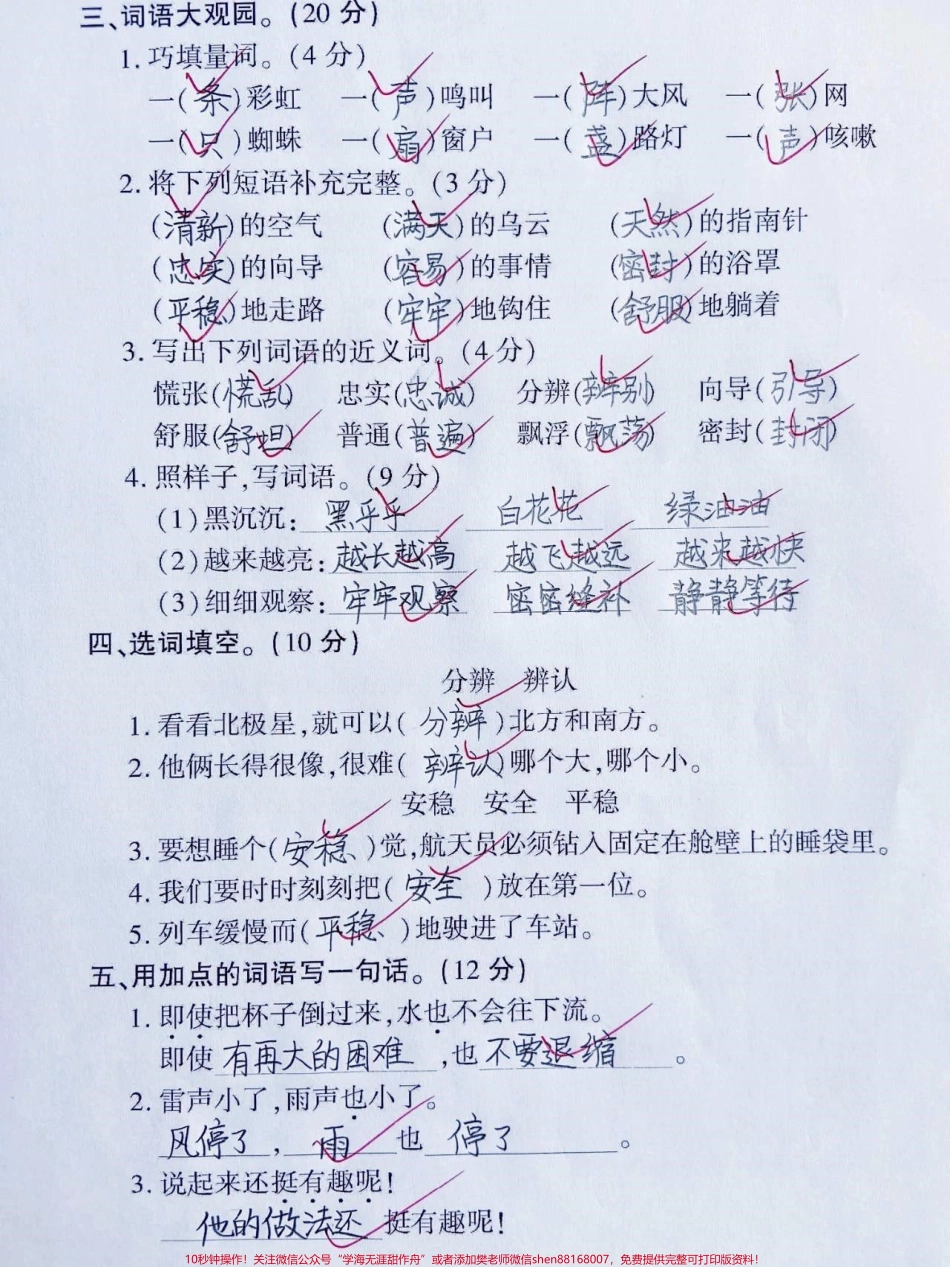 三、词语大观园。(20 分)
1. 巧填量词。(4 分)
一(条)彩虹 一(声)鸣叫 一(阵)大风 一(张)网
一(只)蜘蛛 一(扇)窗户 一(盏)路灯 一(声)咳嗽
2. 将下列短语补充完整。(3 分)
(清新)的空气 (满天)的乌云 (天然)的指南针
(忠实)的向导 (容易)的事情 (密封)的浴罩
(平稳)地走路 (牢牢)地钩住 (舒服)地躺着
3. 写出下列词语的近义词。(4 分)
慌张(慌乱) 忠实(忠诚) 分辨(辨别) 向导(引导)
舒服(舒坦) 普通(普遍) 飘浮(飘荡) 密封(封闭)
4. 照样子,写词语。(9 分)
(1)黑沉沉: 黑乎乎 白花花 绿油油
(2)越来越亮: 越长越高 越飞越远 越来越快
(3)细细观察: 牢牢观察 密密缝补 静静等待
四、选词填空。(10 分)
分辨 辨认
1. 看看北极星,就可以(分辨)北方和南方。
2. 他俩长得很像,很难(辨认)哪个大,哪个小。
安稳 安全 平稳
3. 要想睡个(安稳)觉,航天员必须钻入固定在舱壁上的睡袋里。
4. 我们要时时刻刻把(安全)放在第一位。
5. 列车缓慢而(平稳)地驶进了车站。
五、用加点的词语写一句话。(12 分)
1. 即使把杯子倒过来,水也不会往下流。
即使 有再大的困难 ,也 不要退缩 。
2. 雷声小了,雨声也小了。
风停了, 雨 也 停了 。
3. 说起来还挺有趣呢!
他的做法还 挺有趣呢!
10秒钟操作！关注微信公众号“学海无涯甜作舟”或者添加樊老师微信shen88168007，免费提供完整可打印版资料！